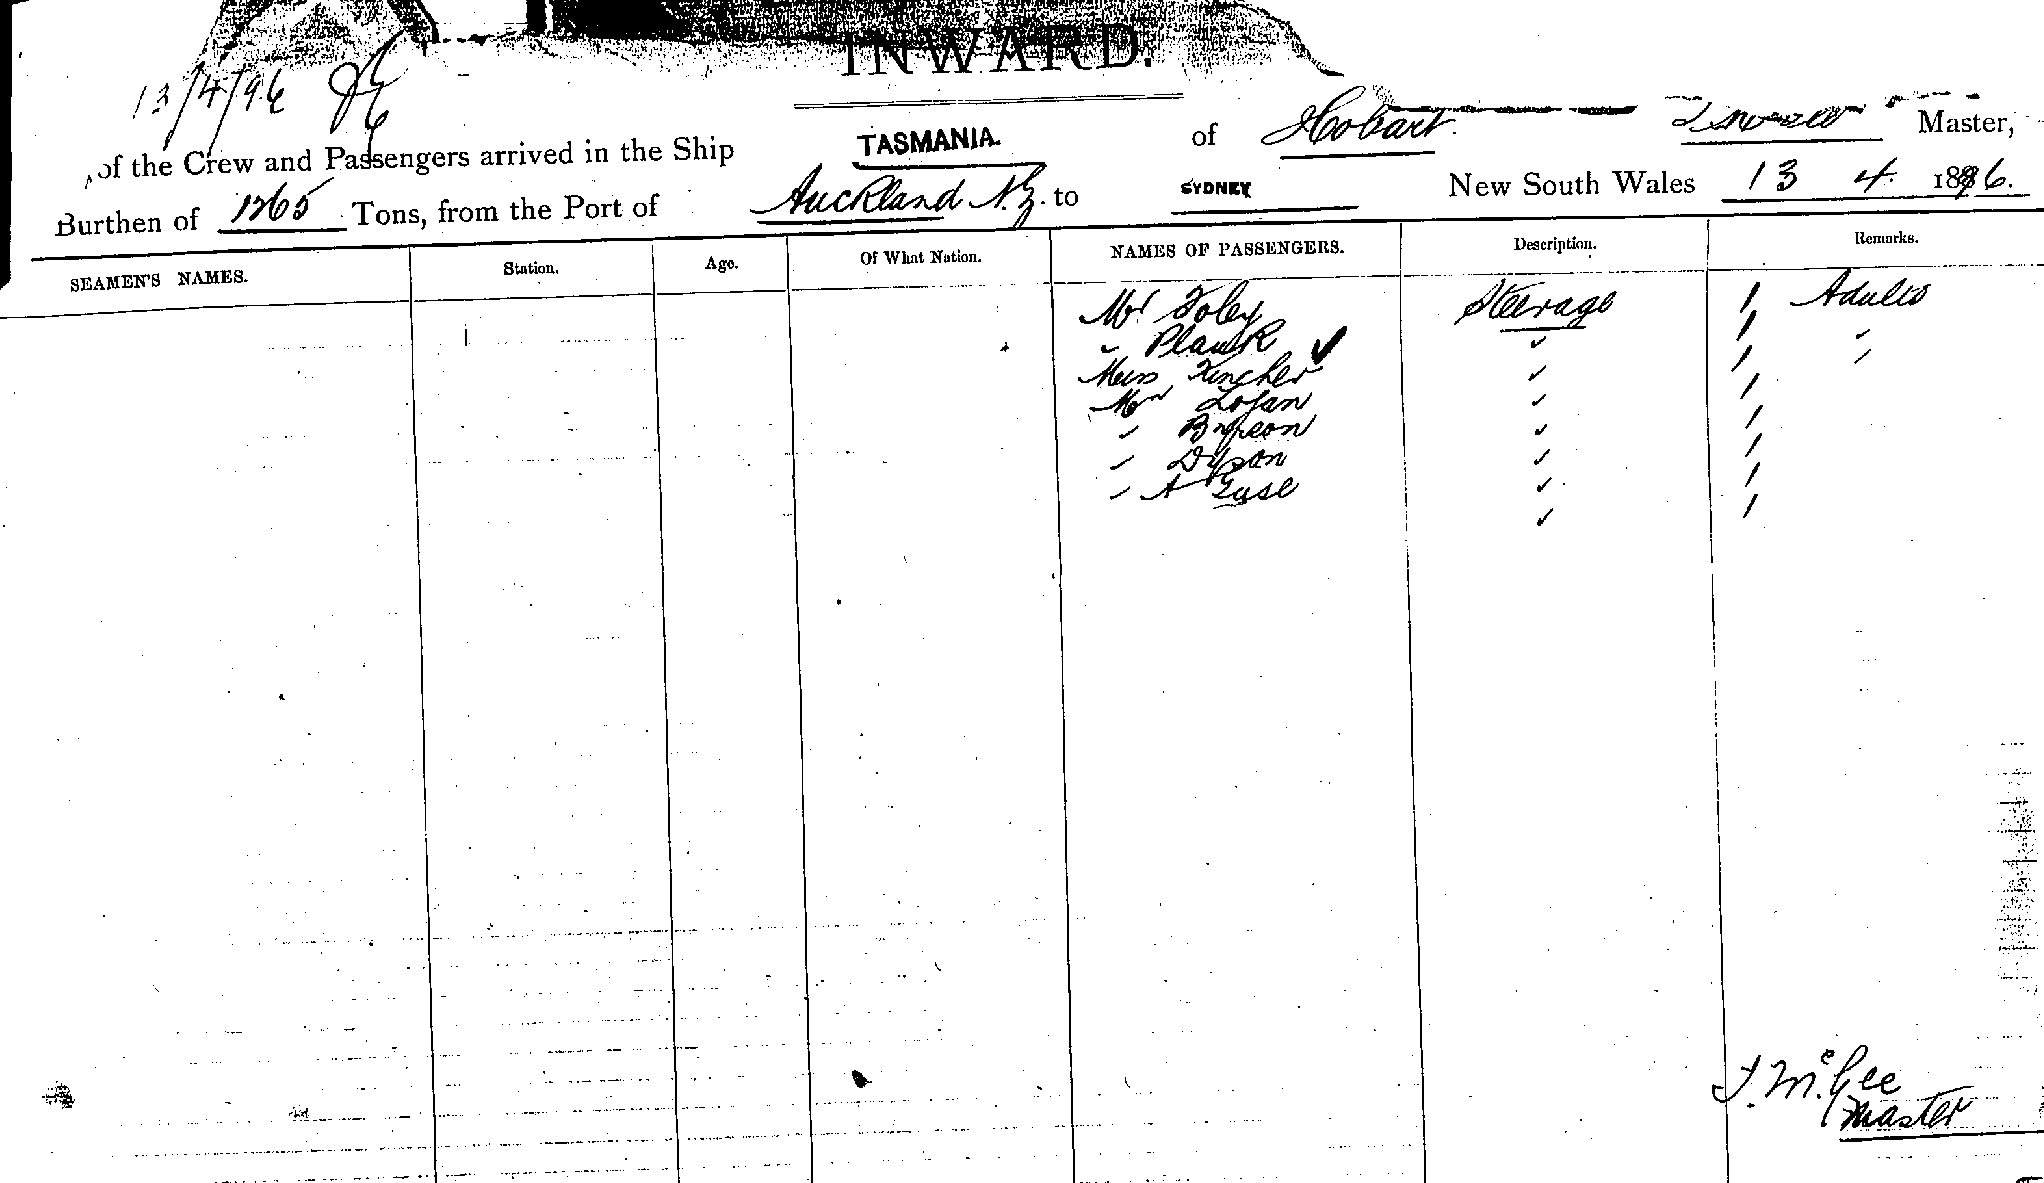 INWARD.
13/4/96
of the Crew and Passengers arrived in the Ship TASMANIA. of Hobart Master,
Burthen of 1265 Tons, from the Port of Auckland N.Z. to SYDNEY New South Wales 13 4 1896.
SEAMEN'S NAMES. Station. Age. Of What Nation. NAMES OF PASSENGERS. Description. Remarks.
Mr Foley Steerage 1 Adults
" Plank ✓ " 1 "
Miss Fincher " 1 "
Mr Logan " 1
" Bryson " 1
" Dyson " 1
" A " 1
" 1
T. McGee
Master